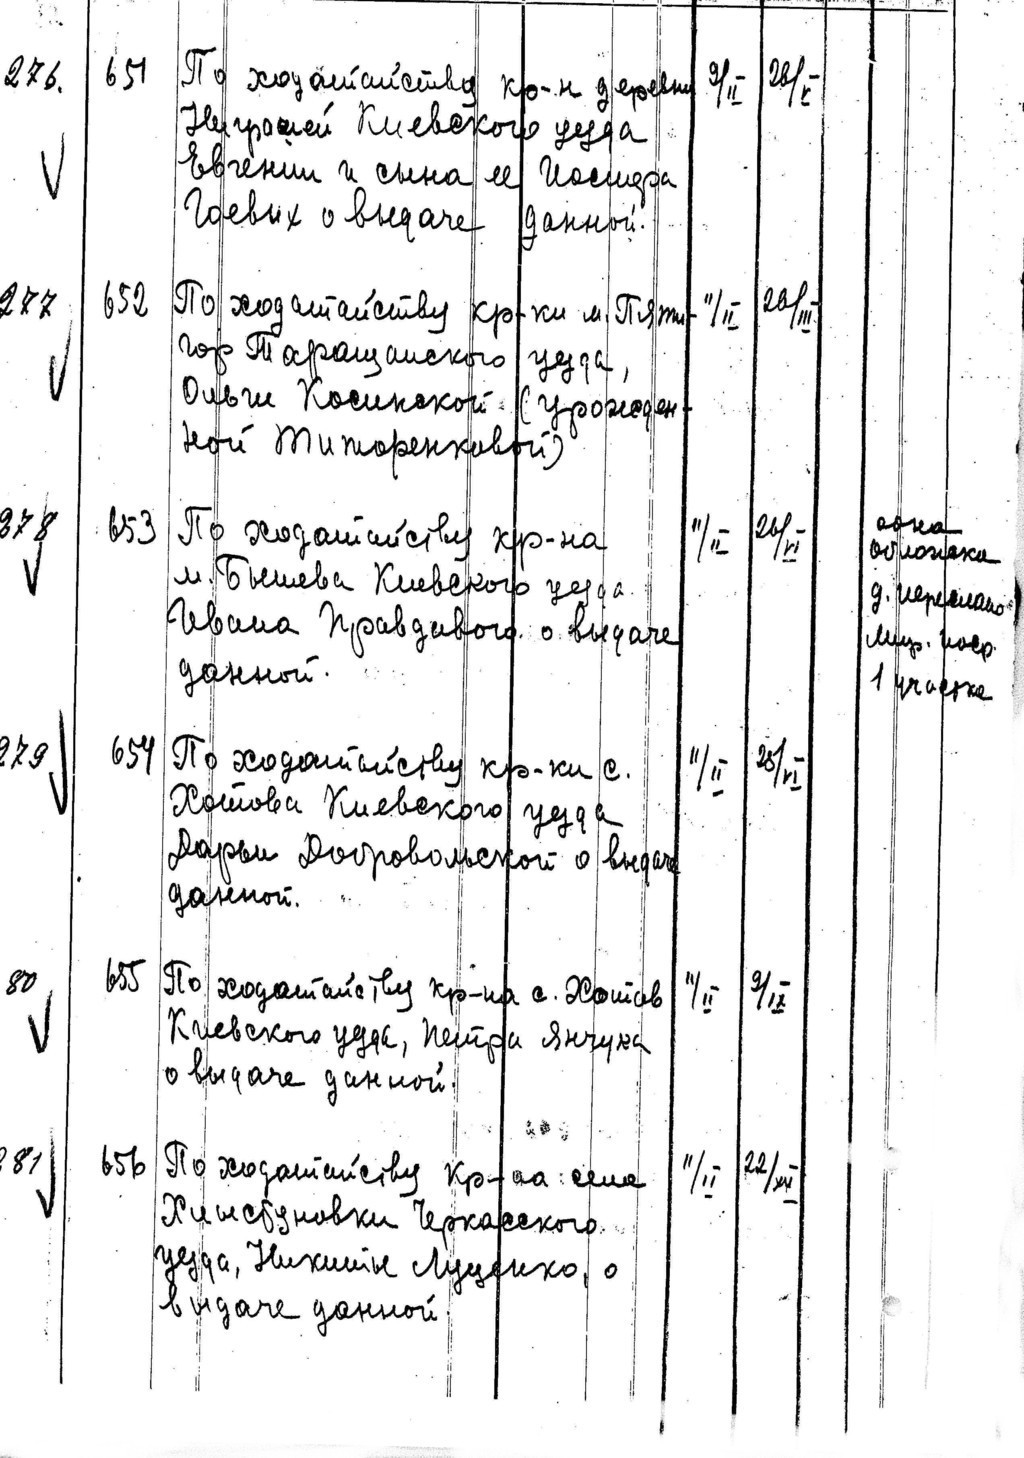 276. 651 По ходатайству кр-н деревни 9/II 26/V
Неграшей Киевского уезда
Евгении и сына ее Иосифа
Гоевых о выдаче данной.
277 652 По ходатайству кр-ки м. Пяти- 11/II 26/III
гор Таращанского уезда,
Ольги Косинской (урожден-
ной Титоренковой)
278 653 По ходатайству кр-на 11/II 26/VI
м. Бышева Киевского уезда
Ивана Правдивого о выдаче
данной.
одна
обложка
д. переслано
мир. поср.
1 участка
279 654 По ходатайству кр-ки с. 11/II 25/VI
Хотова Киевского уезда
Дарьи Добровольской о выдаче
данной.
80 655 По ходатайству кр-на с. Хотов 11/II 9/IX
Киевского уезда, Петра Янчука
о выдаче данной.
281 656 По ходатайству кр-на села 11/II 22/
Хлыстуновки Черкасского
уезда, Никиты Луценко, о
выдаче данной.